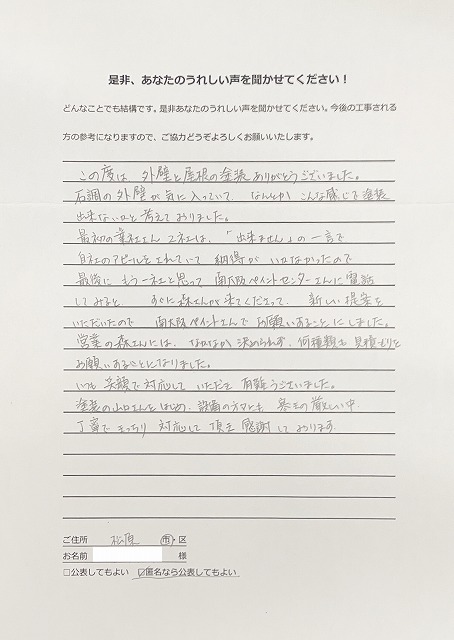 是非、あなたのうれしい声を聞かせてください！
どんなことでも結構です。是非あなたのうれしい声を聞かせてください。今後の工事される
方の参考になりますので、ご協力どうぞよろしくお願いいたします。
この度は 外壁と屋根の塗装 ありがとうございました。
石調の外壁が気に入っていて、なんとか こんな感じで 塗装
出来ないかと 考えて おりました。
最初の業社さん 2社は、「出来ません」の 一言で
自社のアピールをされていて 納得が いかなかったので
最後に もう一社と思って 南大阪ペイントセンターさんに 電話
してみると、 すぐに森さんが来てくださって、 新しい提案を
いただいたので 南大阪ペイントさんで お願いすることにしました。
営業の森さんには、なかなか 決められず、何種類も 見積もりを
お願いすることになりました。
いつも 笑顔で 対応して いただき 有難うございました。
塗装の山口さんをはじめ、設備の方々とも 寒さの厳しい中
丁寧で きっちり 対応して 頂き 感謝 して おります
ご住所 松原 市・区
お名前 様
□公表してもよい ☑匿名なら公表してもよい